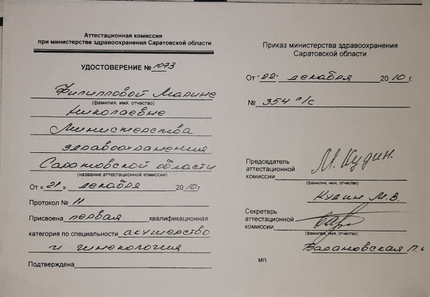 Аттестационная комиссия
при министерстве здравоохранения Саратовской области
УДОСТОВЕРЕНИЕ № 1073
Филипповой Марине
(фамилия, имя, отчество)
Николаевне
Министерства
здравоохранения
Саратовской области
(название аттестационной комиссии)
От «21» декабря 2010 г.
Протокол № 11
Присвоена первая квалификационная
категория по специальности акушерство
и гинекология
Подтверждена
Приказ министерства здравоохранения
Саратовской области
От «22» декабря 2010 г.
№ 354 л/с
Председатель
аттестационной
комиссии М. Кудин.
(фамилия, имя, отчество)
Кудин М.В.
Секретарь
аттестационной
комиссии
(фамилия, имя, отчество)
Барановская
МП